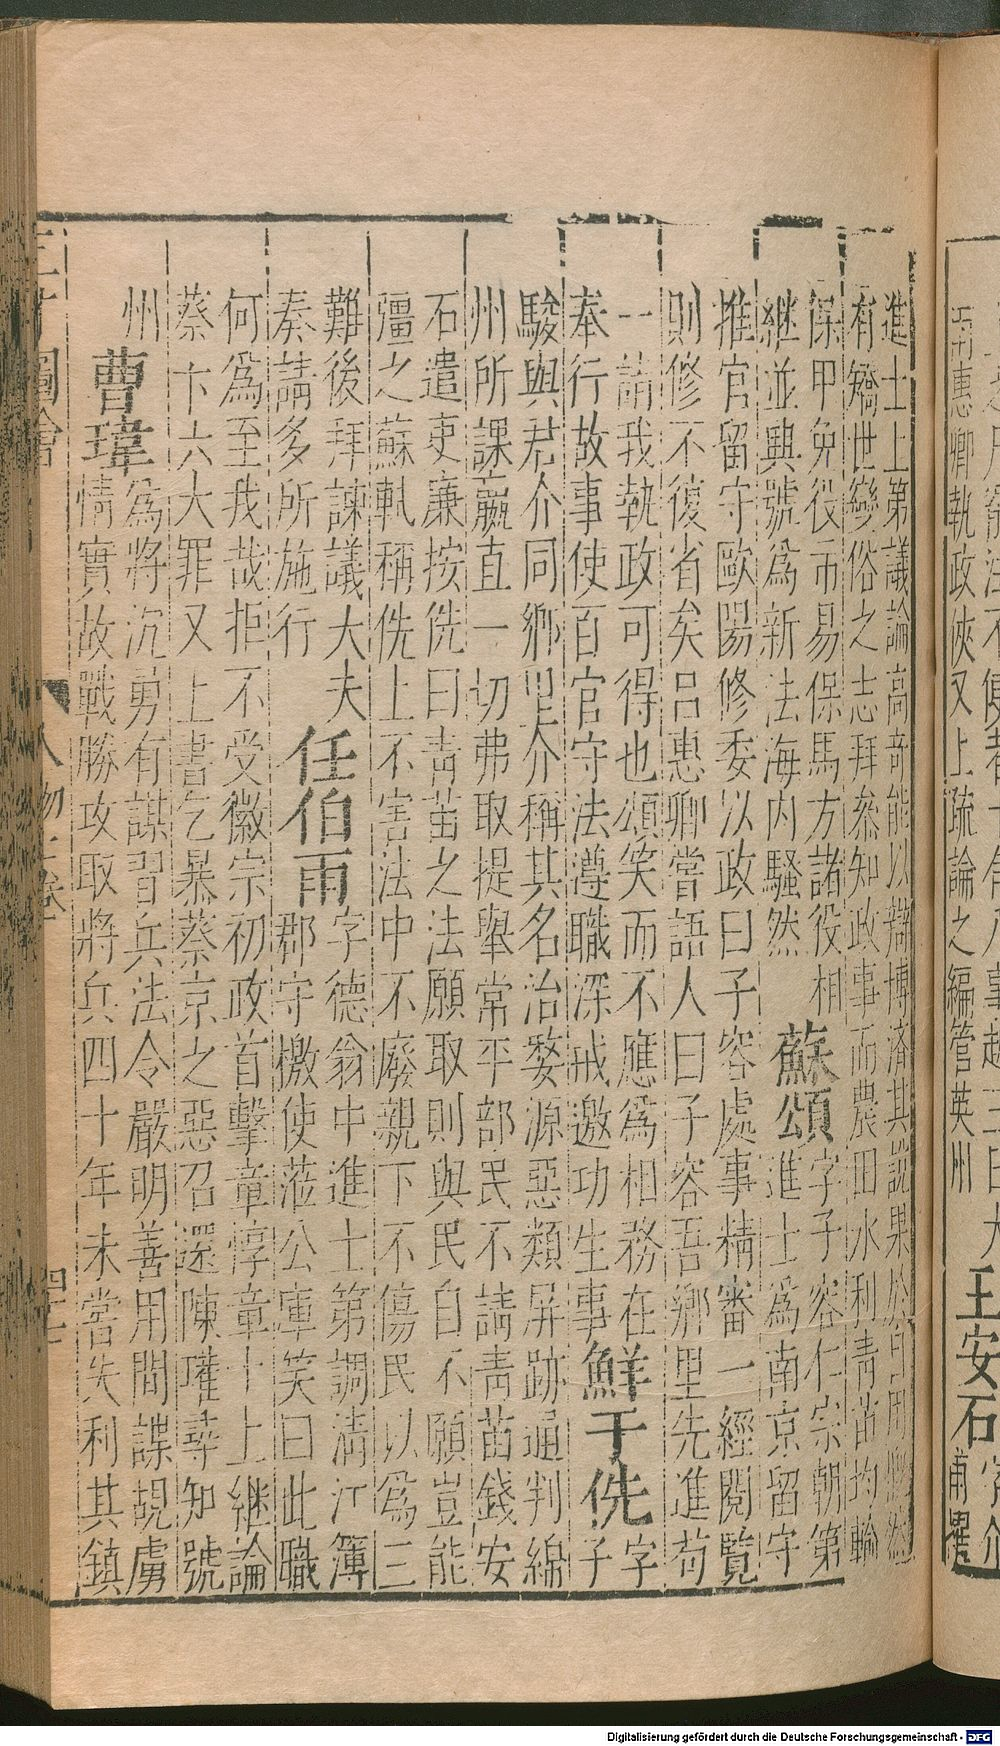 進士上第議論高奇能以辯博濟其說果於自用慨然
有矯世變俗之志拜叅知政事而農田水利青苗均輸
保甲免役市易保馬方諸役相
継並興號為新法海内騷然
蘇頌
字子容仁宗朝第
進士為南京留守
推官留守歐陽修委以政曰子容處事精審一經閱覽
則修不復省矣呂惠卿嘗語人曰子容吾鄉里先進苟
一詣我執政可得也頌笑而不應為相務在
奉行故事使百官守法遵職深戒邀功生事
鮮于侁
字
子
駿與君介同鄉里介稱其名治婺源惡類屏跡通判綿
州所課羸直一切弗取提舉常平部民不請青苗錢安
石遣吏廉按侁曰青苗之法願取則與民自不願豈能
彊之蘇軾稱侁上不害法中不廢親下不傷民以為三
難後拜諫議大夫
奏請多所施行
任伯雨
字德翁中進士第調清江簿
郡守檄使蒞公庫笑曰此職
何為至我哉拒不受徽宗初政首擊章惇章十上継論
蔡卞六大罪又上書乞暴蔡京之惡召還陳瓘尋知號
州
曹瑋
為將沉勇有謀習兵法令嚴明善用間諜胡虜
情實故戰勝攻取將兵四十年未嘗失利其鎮
三才圖會
人物
王安石
甫惠卿執政俠又上疏論之編管英州
Digitalisierung gefördert durch die Deutsche Forschungsgemeinschaft - DFG